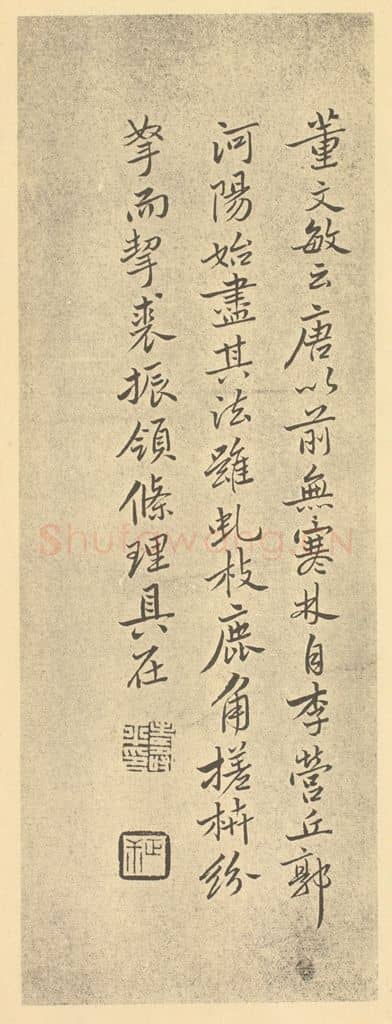 董文敏云唐以前無寒林自李營丘郭
河陽始盡其法雖虬枝鹿角槎枿紛
拏而挈裘振領條理具在